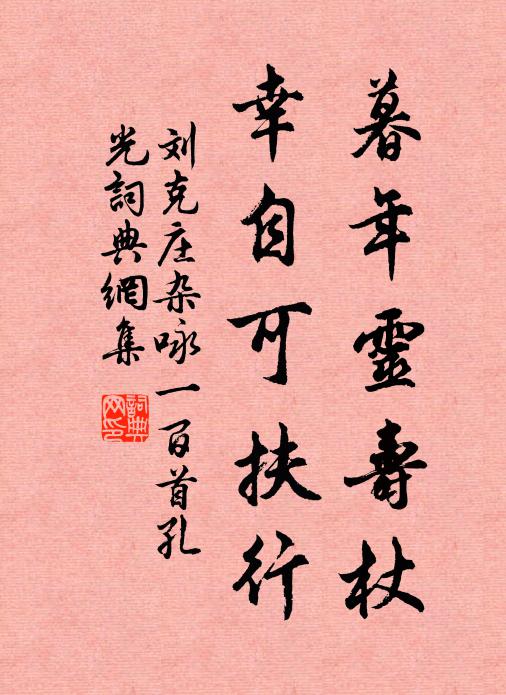 暮年靈壽杖
幸自可扶行
刘克庄杂咏一百首孔
光詞典網集
詞典网印